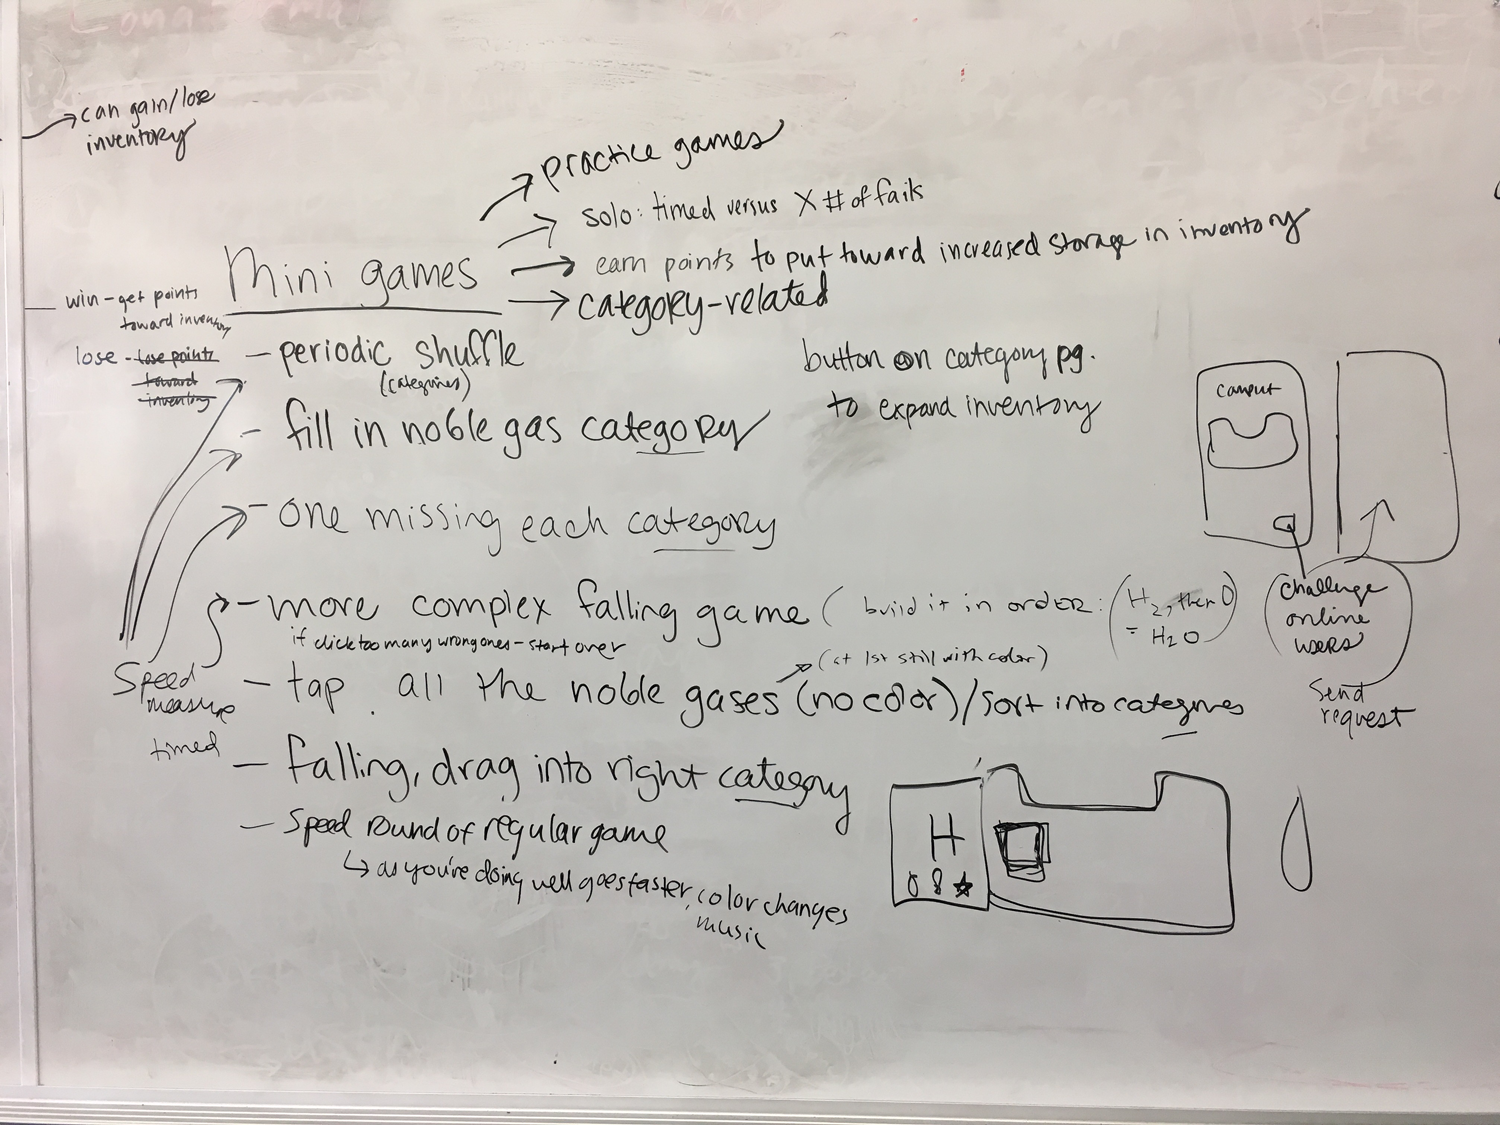 can gain/lose
inventory
practice games
solo: timed versus X # of fails
earn points to put toward increased storage in inventory
category-related
Mini games
win - get points
toward inventory
lose - lose points
toward
inventory
- periodic shuffle
(categories)
- fill in noble gas category
- one missing each category
- more complex falling game ( build it in order: (H2, then O
= H2O)
if click too many wrong ones - start over
(at 1st still with color)
- tap all the noble gases (no color)/sort into categories
- falling, drag into right category
- speed round of regular game
↳ as you're doing well goes faster, color changes
music
Speed
measure
timed
button on category pg.
to expand inventory
challenge
online
users
send
request
H